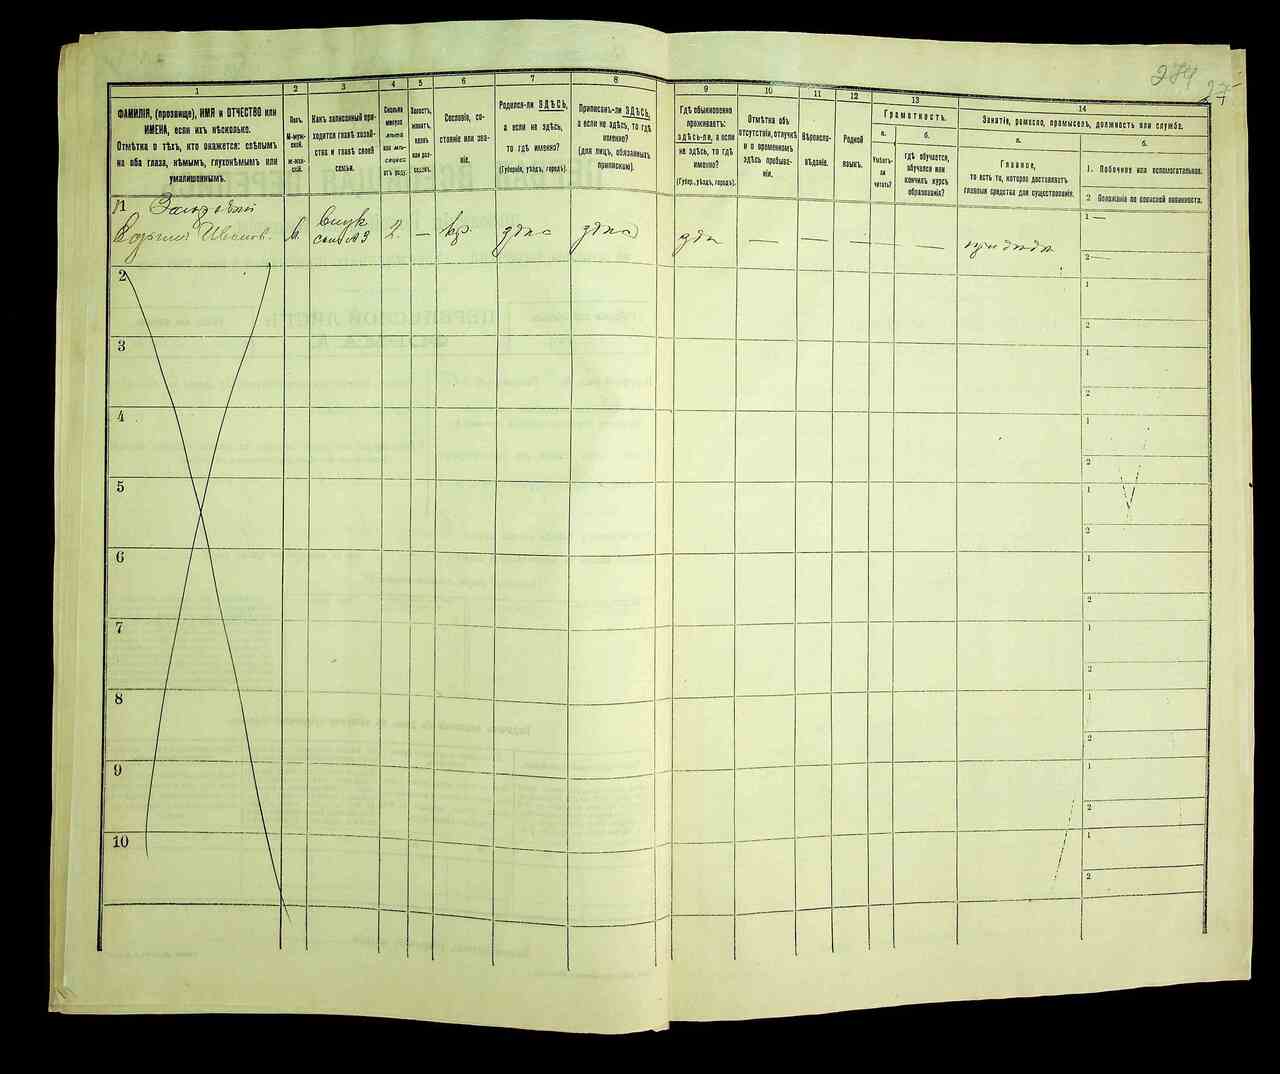 284
27
1
2
3
4
5
6
7
8
9
10
11
12
13
14
ФАМИЛІЯ, (прозвище), ИМЯ и ОТЧЕСТВО или
ИМЕНА, если ихъ нѣсколько.
Отмѣтка о тѣхъ, кто окажется: слѣпымъ
на оба глаза, нѣмымъ, глухонѣмымъ или
умалишеннымъ.
Полъ.
М-муж-
ской.
Ж-жен-
скій.
Какъ записанный при-
ходится главѣ хозяй-
ства и главѣ своей
семьи.
Сколько
минуло
лѣтъ
или мѣ-
сяцевъ
отъ роду.
Холостъ,
женатъ,
вдовъ
или раз-
веденъ.
Сословіе, со-
стояніе или зва-
ніе.
Родился-ли ЗДѢСЬ,
а если не здѣсь,
то гдѣ именно?
(Губернія, уѣздъ, городъ).
Приписанъ-ли ЗДѢСЬ,
а если не здѣсь, то гдѣ
именно?
(для лицъ, обязанныхъ
припискою).
Гдѣ обыкновенно
проживаетъ:
здѣсь-ли, а если
не здѣсь, то гдѣ
именно?
(Губер., уѣздъ, городъ).
Отмѣтка объ
отсутствіи, отлучкѣ
и о временномъ
здѣсь пребыва-
ніи.
Вѣроиспо-
вѣданіе.
Родной
языкъ.
Грамотность.
а.
б.
Умѣетъ-
ли
читать?
гдѣ обучается,
обучался или
кончилъ курсъ
образованія?
Занятіе, ремесло, промыселъ, должность или служба.
а.
б.
Главное,
то есть то, которое доставляетъ
главныя средства для существованія.
1. Побочное или вспомогательное.
2 Положеніе по воинской повинности.
11
Иванов.
М.
внук
2
—
кр.
здѣс
здѣс
здѣ
—
—
—
—
—
при дѣдѣ
1 —
2 —
2
1
2
3
1
2
4
1
2
5
1
2
6
1
2
7
1
2
8
1
2
9
1
2
10
1
2